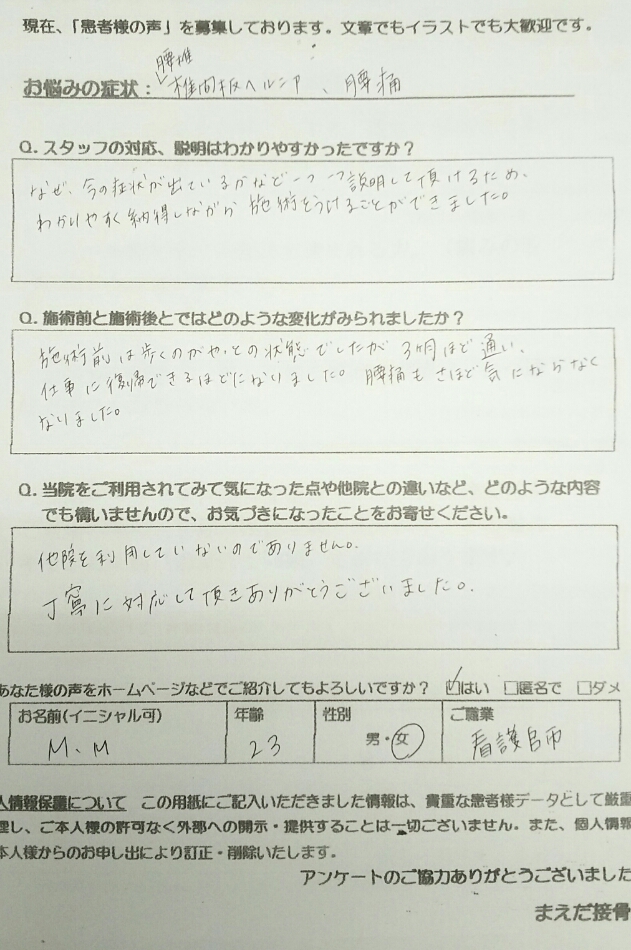 現在、「患者様の声」を募集しております。文章でもイラストでも大歓迎です。
腰椎
お悩みの症状： 椎間板ヘルニア 、 腰痛
Q. スタッフの対応、説明はわかりやすかったですか？
なぜ、今の症状が出ているかなど一つ一つ説明して頂けるため、
わかりやすく納得しながら施術をうけることができました。
Q. 施術前と施術後とではどのような変化がみられましたか？
施術前は歩くのがやっとの状態でしたが 3ヶ月ほど通い、
仕事に復帰できるほどになりました。腰痛もさほど気にならなく
なりました。
Q. 当院をご利用されてみて気になった点や他院との違いなど、どのような内容
でも構いませんので、お気づきになったことをお寄せください。
他院を利用していないのでありません。
丁寧に対応して頂きありがとうございました。
あなた様の声をホームページなどでご紹介してもよろしいですか？ ☑はい □匿名で □ダメ
お名前(イニシャル可) 年齢 性別 ご職業
M.M 23 男・女 看護師
人情報保護について この用紙にご記入いただきました情報は、貴重な患者様データとして厳重
理し、ご本人様の許可なく外部への開示・提供することは一切ございません。また、個人情報
本人様からのお申し出により訂正・削除いたします。
アンケートのご協力ありがとうございました
まえだ接骨